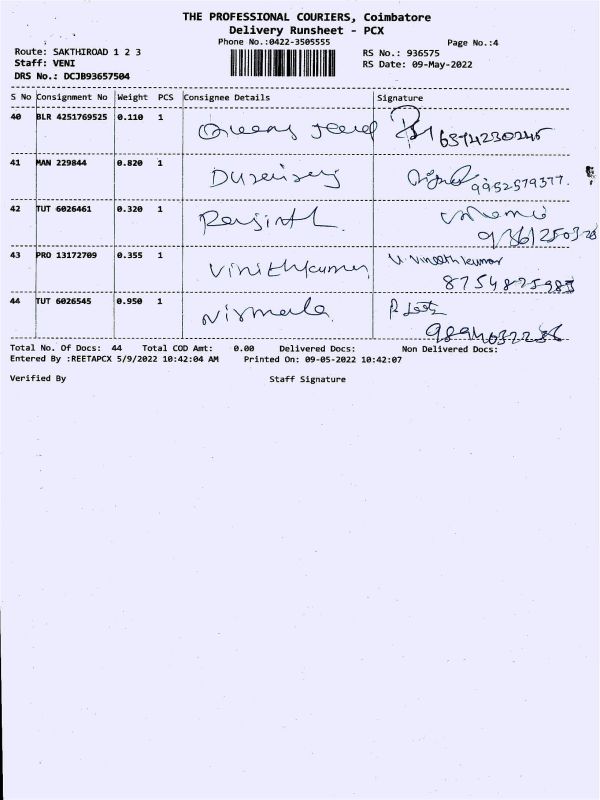 THE PROFESSIONAL COURIERS, Coimbatore
Delivery Runsheet - PCX
Phone No.:0422-3505555
Page No.:4
Route: SAKTHIROAD 1 2 3
RS No.: 936575
Staff: VENI
RS Date: 09-May-2022
DRS No.: DCJB93657504
S No Consignment No Weight PCS Consignee Details Signature
40 BLR 4251769525 0.110 1
41 MAN 229844 0.820 1
9952579377.
42 TUT 6026461 0.320 1
43 PRO 13172709 0.355 1 Vinithkumar V. Vineethkumar
44 TUT 6026545 0.950 1 Nirmala
Total No. Of Docs: 44 Total COD Amt: 0.00 Delivered Docs: Non Delivered Docs:
Entered By :REETAPCX 5/9/2022 10:42:04 AM Printed On: 09-05-2022 10:42:07
Verified By Staff Signature